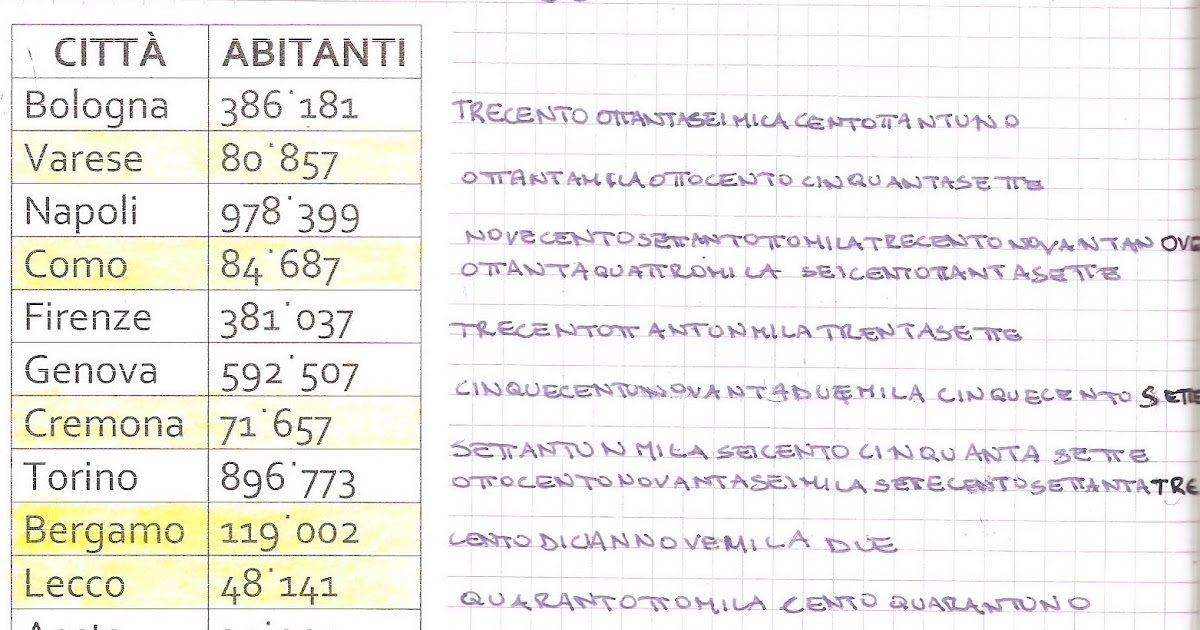 CITTÀ ABITANTI
Bologna 386˙181 TRECENTO OTTANTASEIMILA CENTOTTANTUNO
Varese 80˙857 OTTANTAMILA OTTOCENTO CINQUANTASETTE
Napoli 978˙399 NOVECENTOSETTANTOTTOMILATRECENTONOVANTANOVE
Como 84˙687 OTTANTAQUATTROMILA SEICENTOTTANTASETTE
Firenze 381˙037 TRECENTOTTANTONMILA TRENTASETTE
Genova 592˙507 CINQUECENTUNOVANTADUEMILA CINQUECENTO SETTE
Cremona 71˙657 SETTANTUNMILA SEICENTO CINQUANTA SETTE
Torino 896˙773 OTTOCENTONOVANTASEIMILA SETECENTOSETTANTATRE
Bergamo 119˙002 CENTODICIANNOVEMILA DUE
Lecco 48˙141 QUARANTOTTOMILA CENTO QUARANTUNO